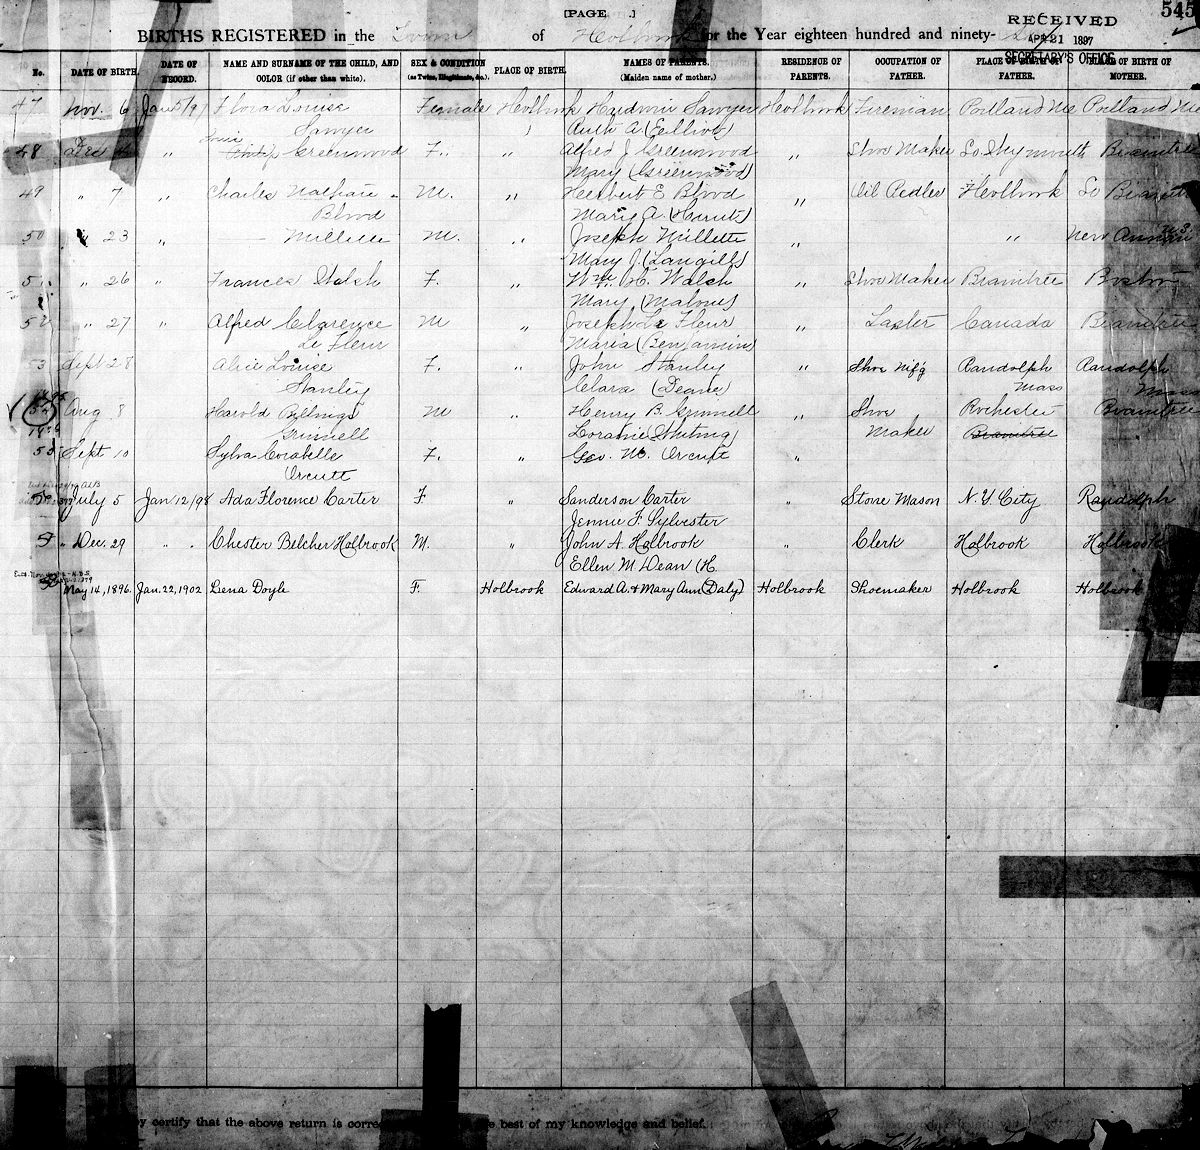 [PAGE ]
545
RECEIVED
APR 21 1897
SECRETARY'S OFFICE
BIRTHS REGISTERED in the Town of Holbrook for the Year eighteen hundred and ninety-
No. DATE OF BIRTH. DATE OF RECORD. NAME AND SURNAME OF THE CHILD, AND COLOR (if other than white). SEX & CONDITION (as Twins, Illegitimate, &c.) PLACE OF BIRTH. NAMES OF PARENTS. (Maiden name of mother.) RESIDENCE OF PARENTS. OCCUPATION OF FATHER. PLACE OF BIRTH OF FATHER. PLACE OF BIRTH OF MOTHER.
47 Nov. 6 Jan 5/97 Flora Louise Female Holbrook Sawyer Holbrook Fireman Portland Me Portland Me
Sawyer Ruth A. (Elliott)
48 Dec " Greenwood F. Alfred J Greenwood " Shoe Maker So Weymouth Braintree
Mary (Greenwood)
49 " 7 " Charles Nathan M. " Herbert E Blood " Oil Pedler Holbrook So Braintree
Blood Marie A.
50 " 23 " Millette M. " Joseph Millette " " New Annan N.S.
Mary J. (Langille)
51 " 26 " Frances Walsh F. " Wm H. Walsh Shoe Maker Braintree Boston
Mary (Malone)
52 " 27 " Alfred Clarence M " Joseph Le Fleur " Laster Canada Braintree
Le Fleur Maria (Benjamin)
53 Sept 28 Alice Louise F. " John Stanley " Shoe Mfg Randolph Randolph
Stanley Clara (Deane) Mass Mass
54 Aug 8 Harold M " Henry B. Grinnell " Shoe Rochester Braintree
1896 Grinnell Loraine (Whiting) Maker Braintree
55 Sept 10 Sylva Corabelle F. " Geo. M. Orcutt "
Orcutt
56 July 5 Jan 12/98 Ada Florence Carter F " Sanderson Carter Stone Mason N.Y. City Randolph
Jennie F. Sylvester
57 " Dec. 29 " " Chester Belcher Holbrook M. " John A. Holbrook " Clerk Holbrook Holbrook
Ellen M. Dean (H.
58 May 14, 1896. Jan. 22, 1902 Lena Doyle F. Holbrook Edward A. & Mary Ann (Daly) Holbrook Shoemaker Holbrook Holbrook
y certify that the above return is correc e best of my knowledge and belief.